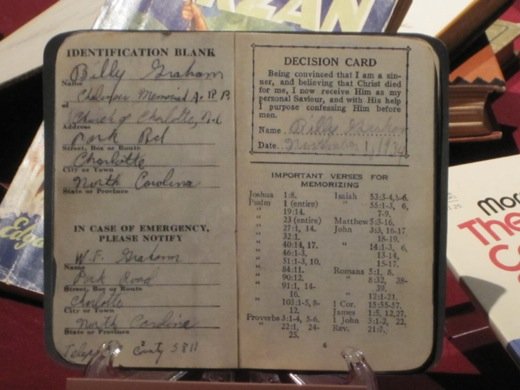 RZAN
IDENTIFICATION BLANK
Billy Graham
Name
Chalmers Memorial A. R. P.
of
Church of Charlotte, N.C.
Address
Park Rd
Street, Box or Route
Charlotte
City or Town
North Carolina
State or Province
IN CASE OF EMERGENCY,
PLEASE NOTIFY
W. F. Graham
Name
Park Road
Street, Box or Route
Charlotte
City or Town
North Carolina
State or Province
County 3811
DECISION CARD
Being convinced that I am a sin-
ner, and believing that Christ died
for me, I now receive Him as my
personal Saviour, and with His help
I purpose confessing Him before
men.
Name Billy Graham
Date November 1, 1934
IMPORTANT VERSES FOR
MEMORIZING
Joshua 1:8.
Psalm 1 (entire)
" 19:14.
" 23 (entire)
" 27:1, 14.
" 32:1.
" 40:14, 17.
" 46:1-3.
" 51:1-3, 10.
" 84:11.
" 90:12.
" 91:1, 14-
16.
" 103:1-5, 8-
12.
Proverbs 3:1-4, 5-6.
" 22:1, 24-
25.
Isaiah 53:3-4, 5-6.
" 55:1-3, 6,
7-9.
Matthew 5:3-16.
John 3:3, 16-17
18-19.
" 14:1-3, 6
13-14,
15-17.
Romans 5:1, 8.
" 8:32, 38-
39.
" 12:1-21.
1 Cor. 15:55-57.
James 1:5, 12, 27.
1 John 3:1-2, 22,
Rev. 21:7.
6
Mor
The
Co
Edga